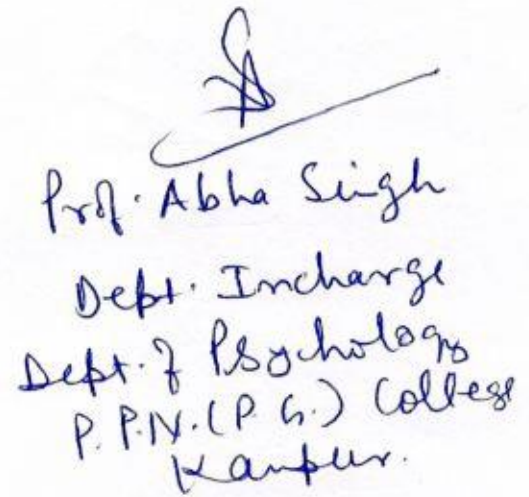 Prof. Abha Singh
Dept. Incharge
Dept. of Psychology
P.P.N. (P.G.) College
Kanpur.